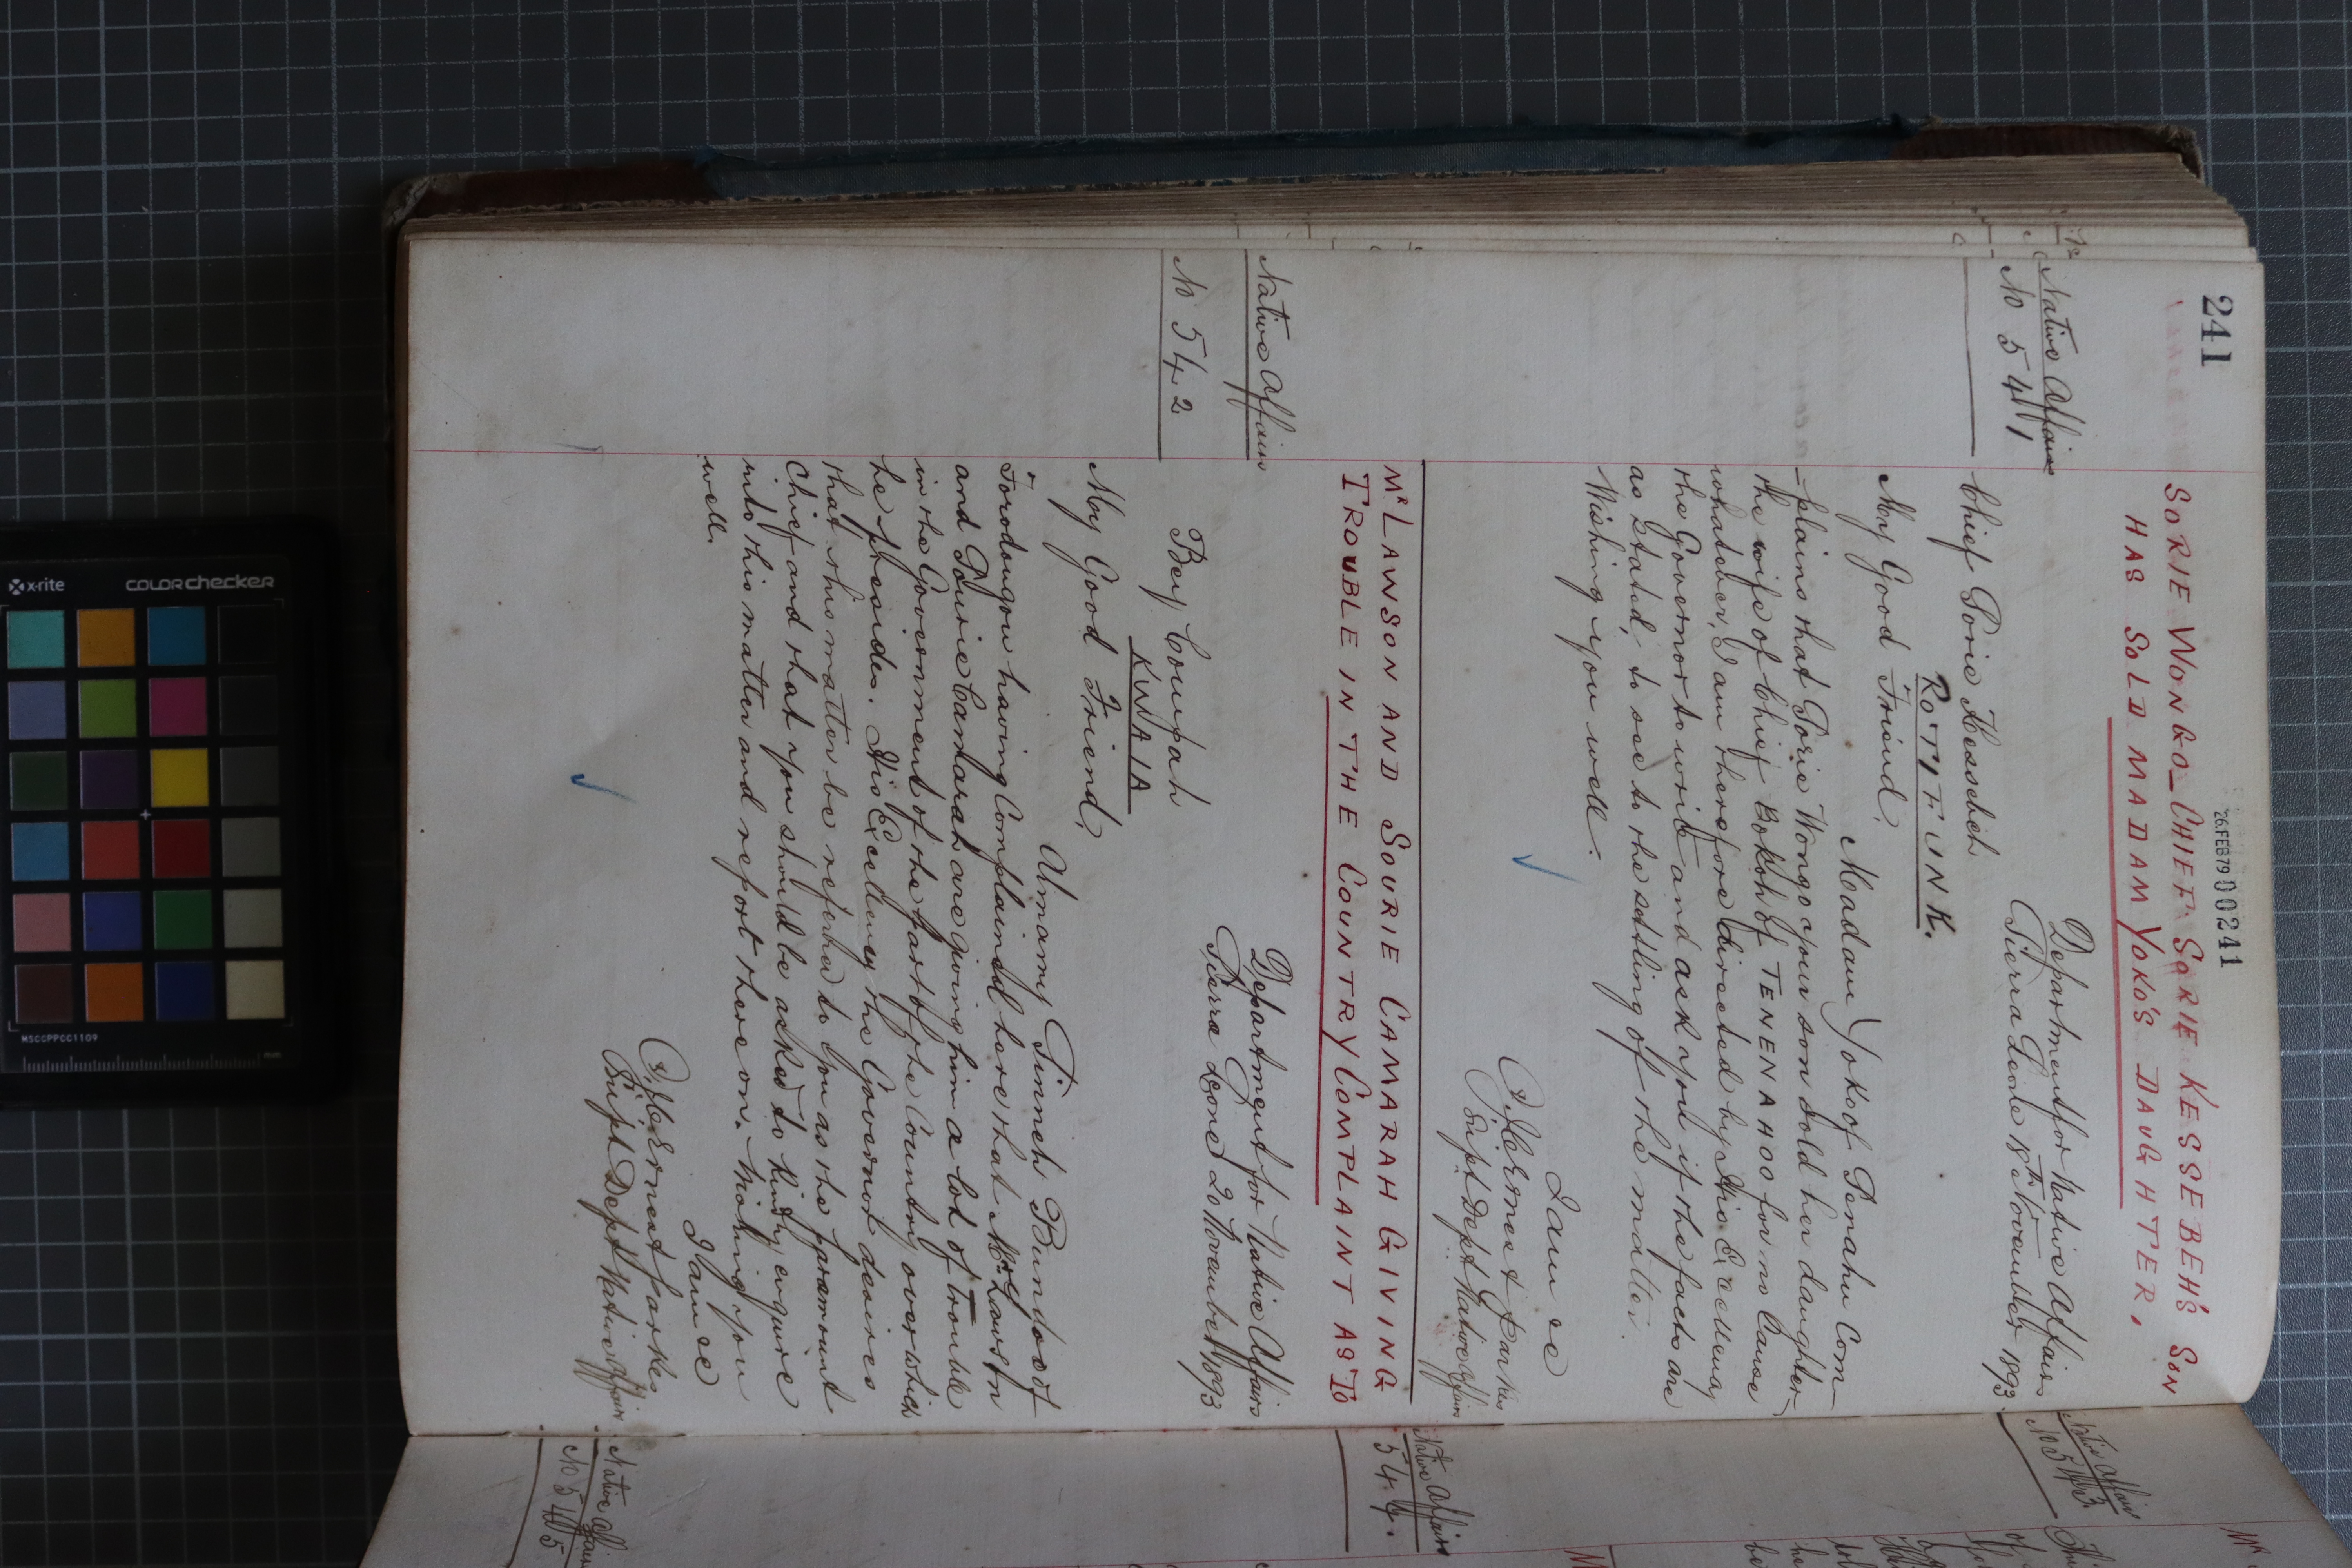 241
26.FEB79 00241
SORIE WONGO_CHIEF SORIE KESSEBEH'S SON
HAS SOLD MADAM YOKO'S DAUGHTER,
Native Affairs
No 541
Department for Native Affairs
Sierra Leone 18th November 1893
Chief Sorie Kessebeh
ROTIFUNK.
My Good Friend,
Madam Yoko of Senahu Com
-plains that Sorie Wongo your son sold her daughter
the wife of Chief Bokoh of TENENAHOO for no Cause
whatsoever, I am therefore directed by His Excellency
the Governor to write and ask you if the facts are
as Stated, to see to the settling of the matter.
Wishing you well.
I am &c
(Sd) J.C. Ernest Parkes
Supt Dept Native Affairs
Mr LAWSON AND SOURIE CAMARAH GIVING
TROUBLE IN THE COUNTRY COMPLAINT AS TO
Native Affairs
No 542
Department for Native Affairs
Sierra Leone 20 November 1893
Bey Compah
KWAIA
My Good Friend,
Almamy Finneh Bundoo of
Forodougou having Complained here that Mr Lawson
and Sourie Camarah are giving him a lot of trouble
in the Government of the part of the Country over which
he presides. His Excellency the Governor desires
that this matter be referred to you as the paramount
Chief and that you should be asked to kindly enquire
into this matter and report there on. Wishing you
well.
I am &c
(Sd) J.C. Ernest Parkes
Supt Dept Native Affairs
Native Affairs
No 543
Native Affairs
544.
Native Affairs
No 545
x-rite
COLORchecker
MSCCPPCC1109
mm